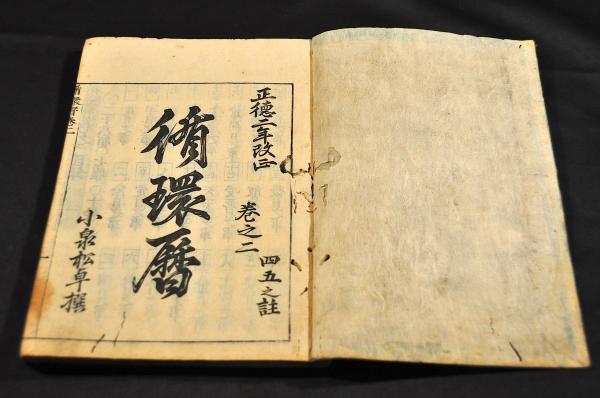 正德二年改正
卷之二
四五之註
循環曆
小泉松卓撰